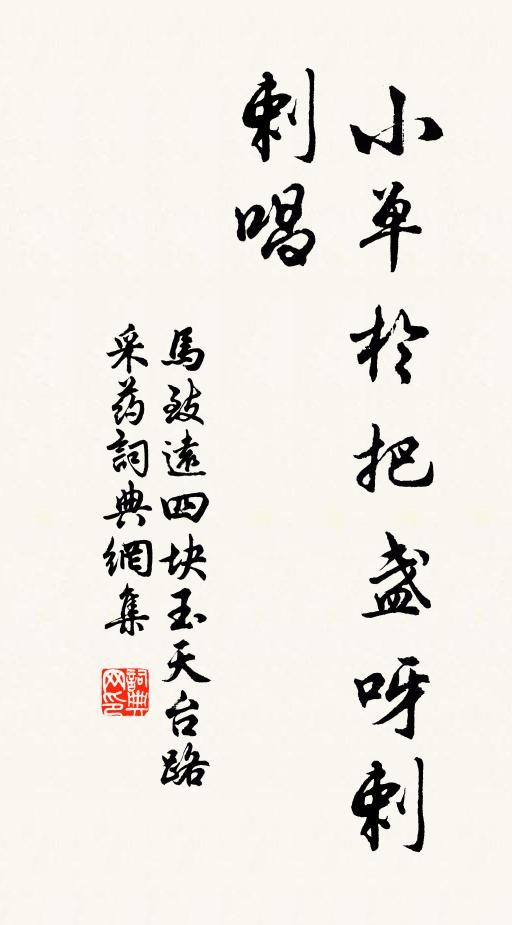 小单於把盏呀剌
剌唱
馬致遠四块玉天台路
采药詞典網集
詞典
网印